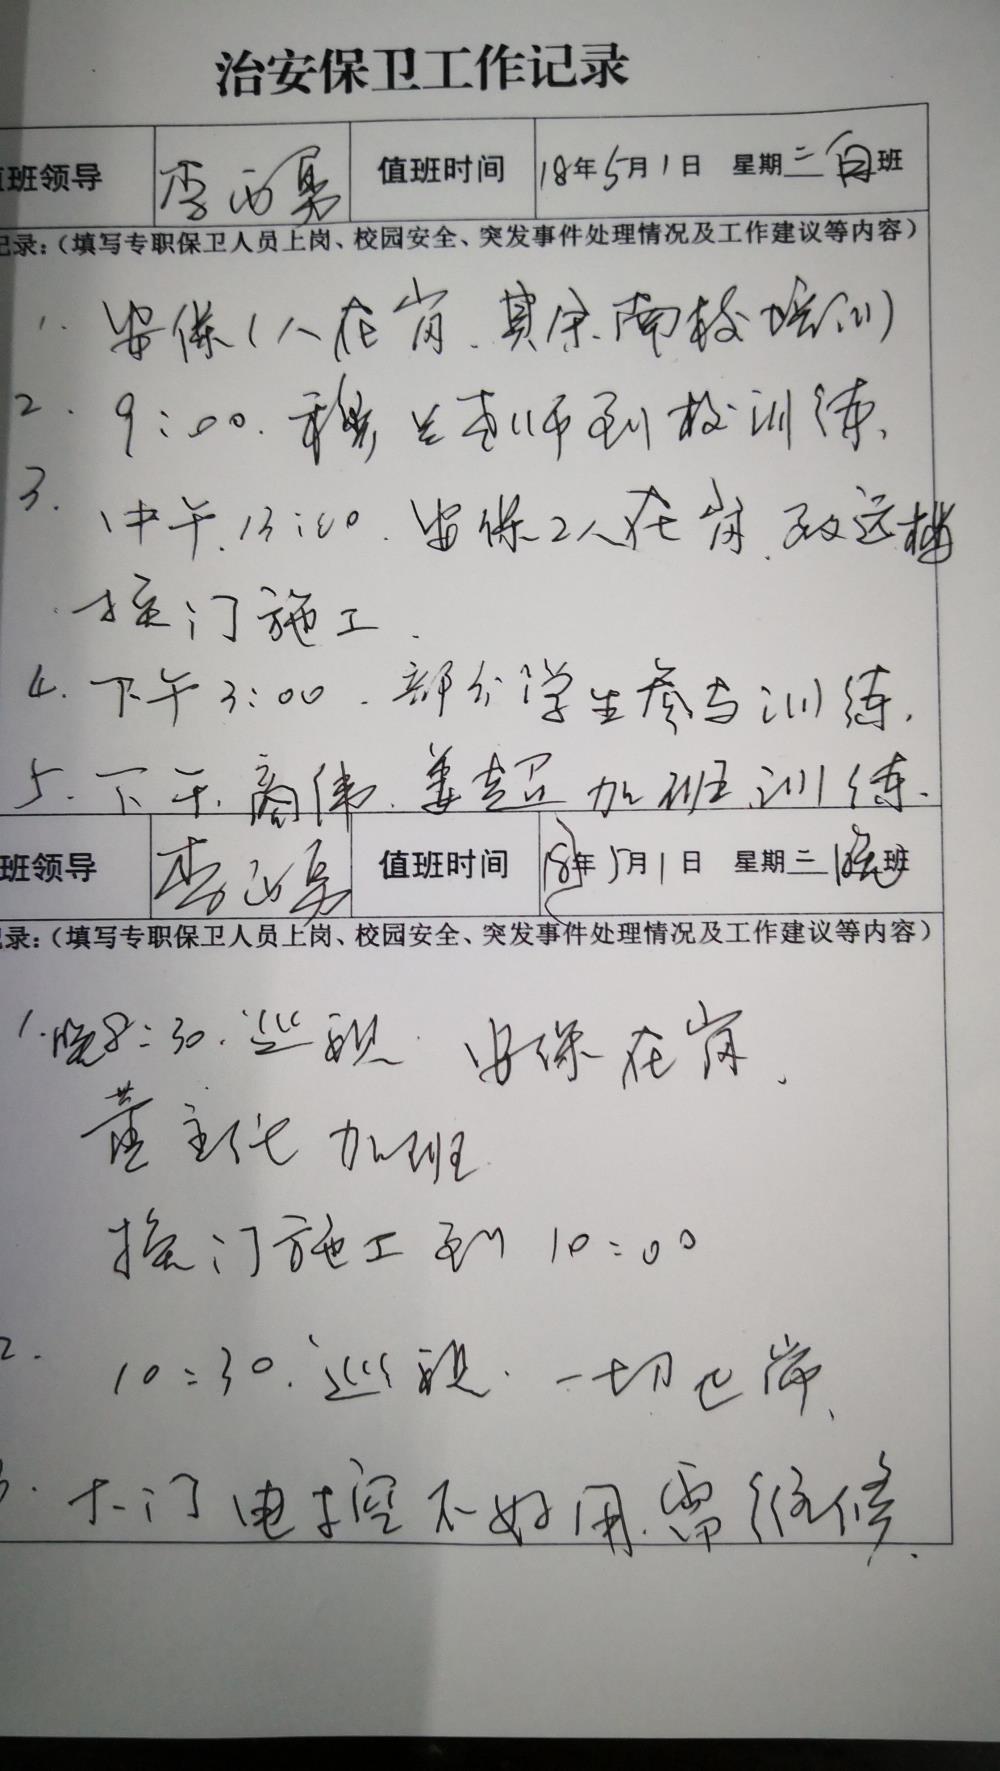 治安保卫工作记录
值班领导 李西勇 值班时间 18年5月1日 星期二白班
记录：（填写专职保卫人员上岗、校园安全、突发事件处理情况及工作建议等内容）
1. 安保1人在岗、其余南校培训
2. 9:00. 老师到校训练、
3. 中午、13:00. 安保2人在岗、致远楼
换门施工.
4. 下午3:00. 部分学生参与训练.
5. 下午、商伟、姜超加班训练.
班领导 李西勇 值班时间 18年5月1日 星期二晚班
记录：（填写专职保卫人员上岗、校园安全、突发事件处理情况及工作建议等内容）
1. 晚8:30. 巡视. 安保在岗、
董主任加班
换门施工到10:00
2. 10:30. 巡视. 一切正常、
3. 大门电控不好用、需维修.